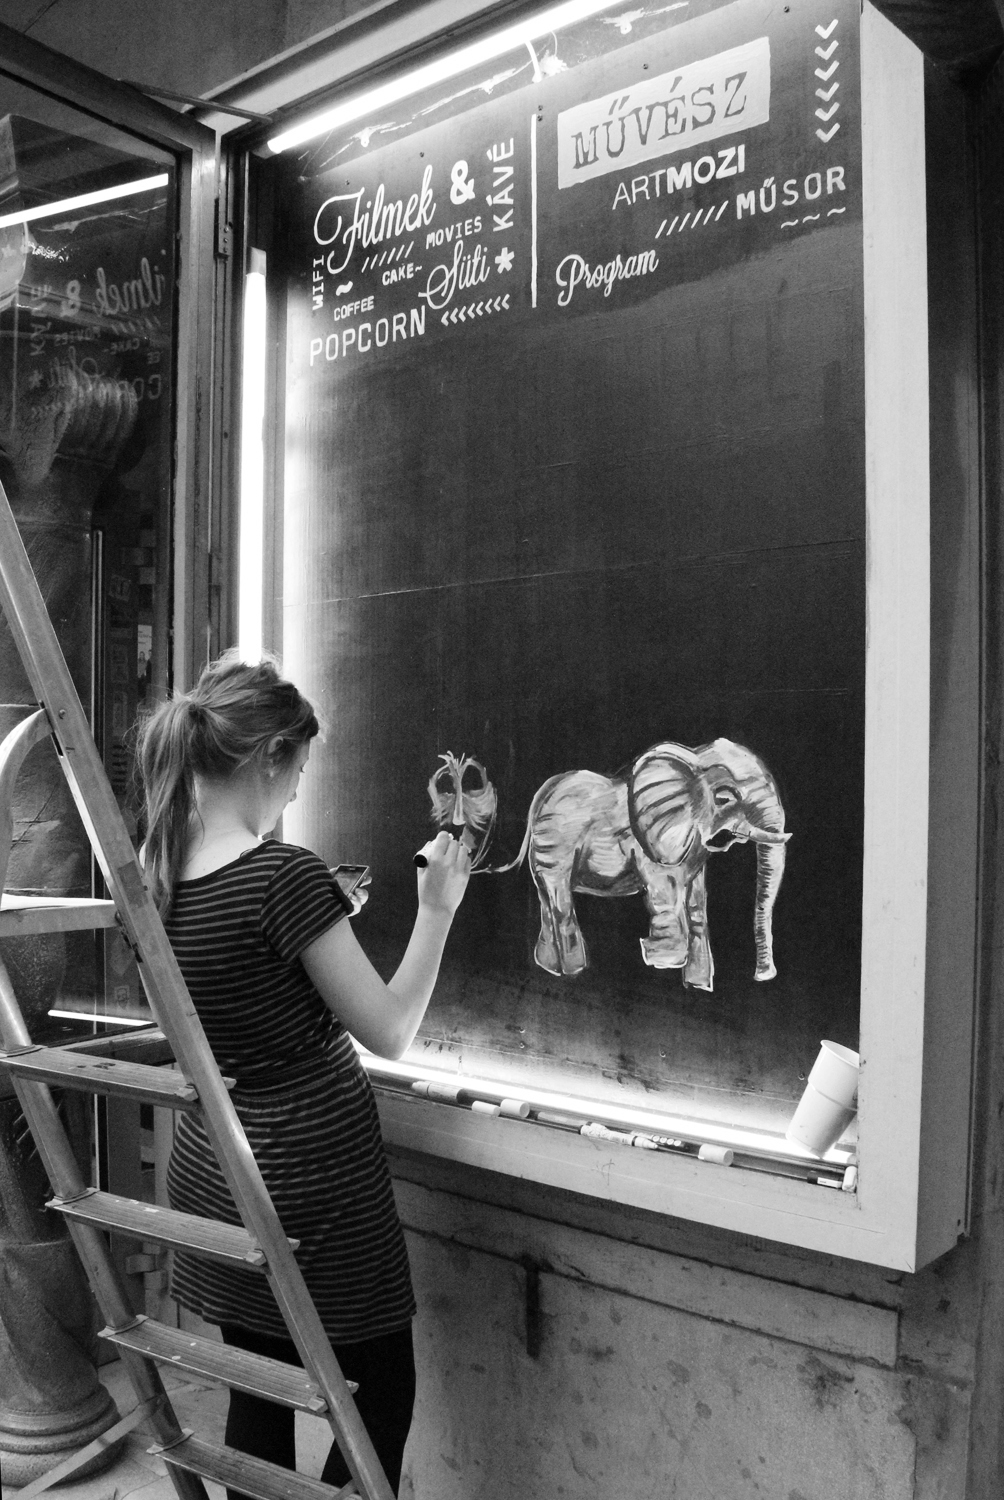 Filmek &
KÁVÉ
WIFI
////// MOVIES
~ CAKE~ Süti *
COFFEE
POPCORN <<<<<<<<
MŰVÉSZ
ARTMOZI
////// MŰSOR
~~~
Program